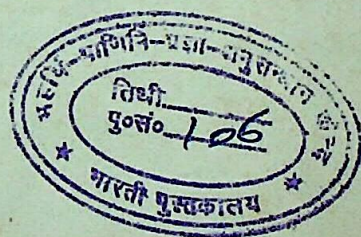 महर्षि-पाणिनि-प्रज्ञा-अनुसन्धान
तिथी
पु०सं० 106
★ भारती पुस्तकालय ★